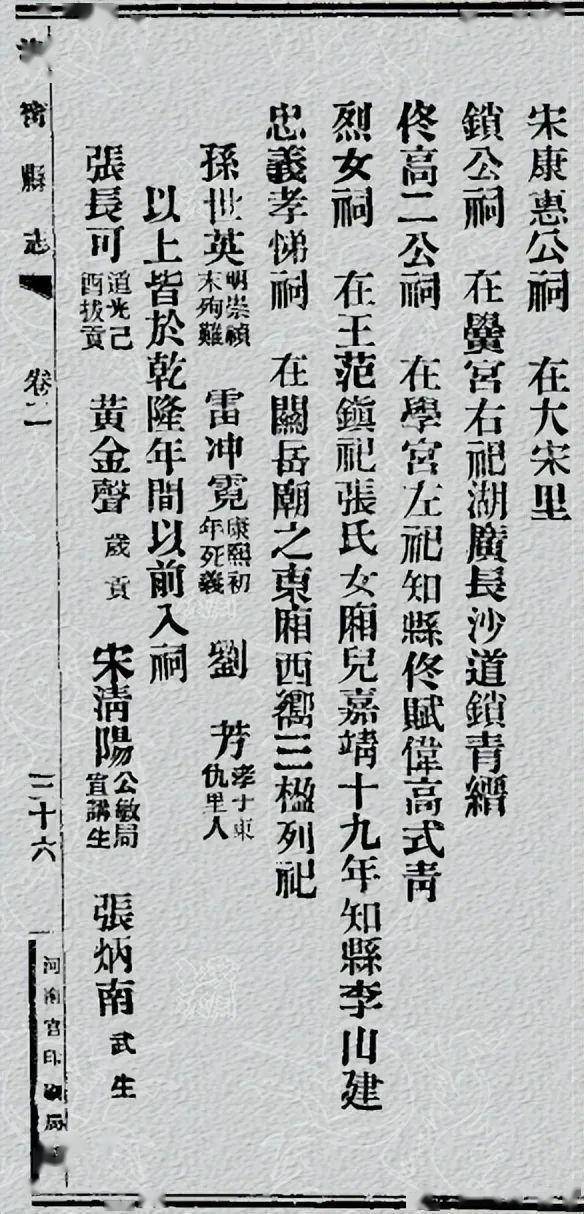 宋康惠公祠　在大宋里
鎖公祠　在黌宮右祀湖廣長沙道鎖青縉
佟高二公祠　在學宮左祀知縣佟賦偉高式青
烈女祠　在王范鎮祀張氏女廂兒嘉靖十九年知縣李山建
忠義孝悌祠　在關岳廟之東廂西嚮三楹列祀
孫世英　明崇禎末殉難　雷冲霓　康熙初年死義　劉　芳　孝子東仇里人
以上皆於乾隆年間以前入祠
張長可　道光己酉拔貢　黃金聲　歲貢　宋清陽　公敏局宣講生　張炳南　武生
縣志　卷二　三十六　河南官印刷局